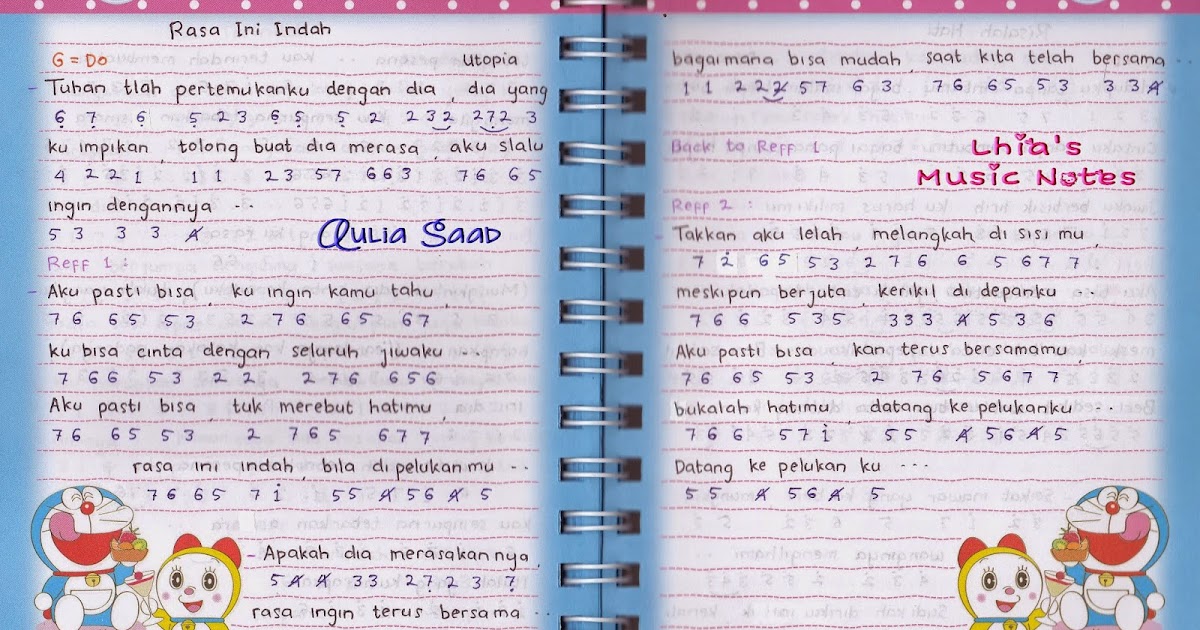 Rasa Ini Indah
G = Do Utopia
- Tuhan tlah pertemukanku dengan dia , dia yang
6 7 6 5 2 3 6 5 5 2 2 3 2 2 7 2 3
ku impikan , tolong buat dia merasa , aku slalu
4 2 2 1 1 1 2 3 5 7 6 6 3 7 6 6 5
ingin dengannya ...
5 3 3 3 4
Qulia Saad
Reff 1 :
- Aku pasti bisa , ku ingin kamu tahu
7 6 6 5 5 3 2 7 6 6 5 6 7
ku bisa cinta dengan seluruh jiwaku ...
7 6 6 5 3 2 2 2 7 6 6 5 6
Aku pasti bisa , tuk merebut hatimu ,
7 6 6 5 5 3 2 7 6 5 6 7 7
rasa ini indah , bila dipelukanmu ...
7 6 6 5 7 i 5 5 4 5 6 4 5
- Apakah dia merasakannya ,
5 4 4 3 3 2 7 2 3 7
rasa ingin terus bersama ...
bagaimana bisa mudah , saat kita telah bersama ...
1 1 2 2 2 5 7 6 3 7 6 6 5 5 3 3 3 4
Back to Reff 1
Lhia's
Music Notes
Reff 2 :
- Takkan aku lelah , melangkah di sisi mu ,
7 2 6 5 5 3 2 7 6 6 5 6 7 7
meskipun berjuta kerikil di depanku
7 6 6 5 3 5 3 3 3 4 5 3 6
Aku pasti bisa , kan terus bersamamu ,
7 6 6 5 5 3 2 7 6 5 6 7 7
bukalah hatimu , datang ke pelukanku ...
7 6 6 5 7 i 5 5 4 5 6 4 5
Datang ke pelukan ku ...
5 5 4 5 6 4 5